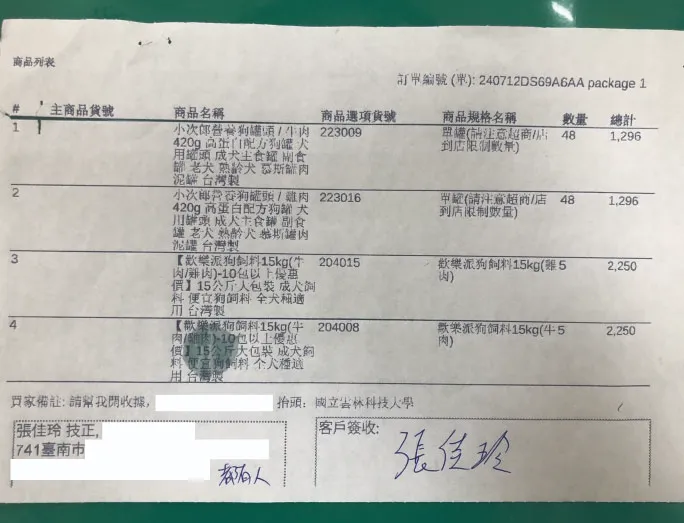 商品列表
訂單編號 (單): 240712DS69A6AA package 1
# 主商品貨號 商品名稱 商品選項貨號 商品規格名稱 數量 總計
1 小次郎營養狗罐頭 / 牛肉 223009 單罐(請注意超商/店 48 1,296
420g 高蛋白配方狗罐 犬 到店限制數量)
用罐頭 成犬主食罐 副食
罐 老犬 熟齡犬 慕斯罐肉
泥罐 台灣製
2 小次郎營養狗罐頭 / 雞肉 223016 單罐(請注意超商/店 48 1,296
420g 高蛋白配方狗罐 犬 到店限制數量)
用罐頭 成犬主食罐 副食
罐 老犬 熟齡犬 慕斯罐肉
泥罐 台灣製
3 【歡樂派狗飼料15kg(牛 204015 歡樂派狗飼料15kg(雞 5 2,250
肉/雞肉)-10包以上優惠 肉)
價】15公斤大包裝 成犬飼
料 便宜狗飼料 全犬種適
用 台灣製
4 【歡樂派狗飼料15kg(牛 204008 歡樂派狗飼料15kg(牛 5 2,250
肉/雞肉)-10包以上優惠 肉)
價】15公斤大包裝 成犬飼
料 便宜狗飼料 全犬種適
用 台灣製
買家備註: 請幫我開收據, 抬頭: 國立雲林科技大學
張佳玲 技正,
741臺南市
客戶簽收:
張佳玲